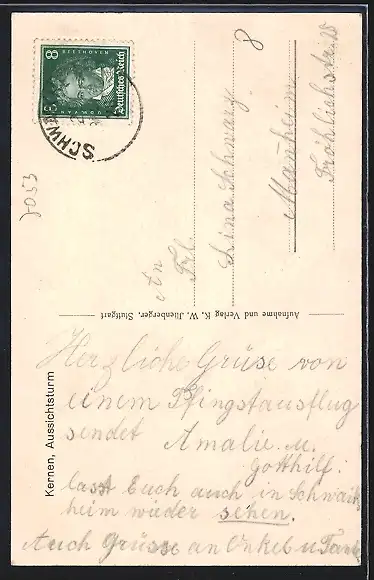 8
Deutsches Reich
3
BEETHOVEN
SCHW
7053
8
An
Frl.
Lina Schwarz
Mannheim
Fröhlichstr.
Aufnahme und Verlag K. W. Jlenberger, Stuttgart
Kernen, Aussichtsturm
Herzliche Grüse von
einem Pfingstausflug
sendet Amalie u.
Gotthilf:
lasst Euch auch in Schwaik
heim wieder sehen.
Auch Grüsse an Onkel u Tante